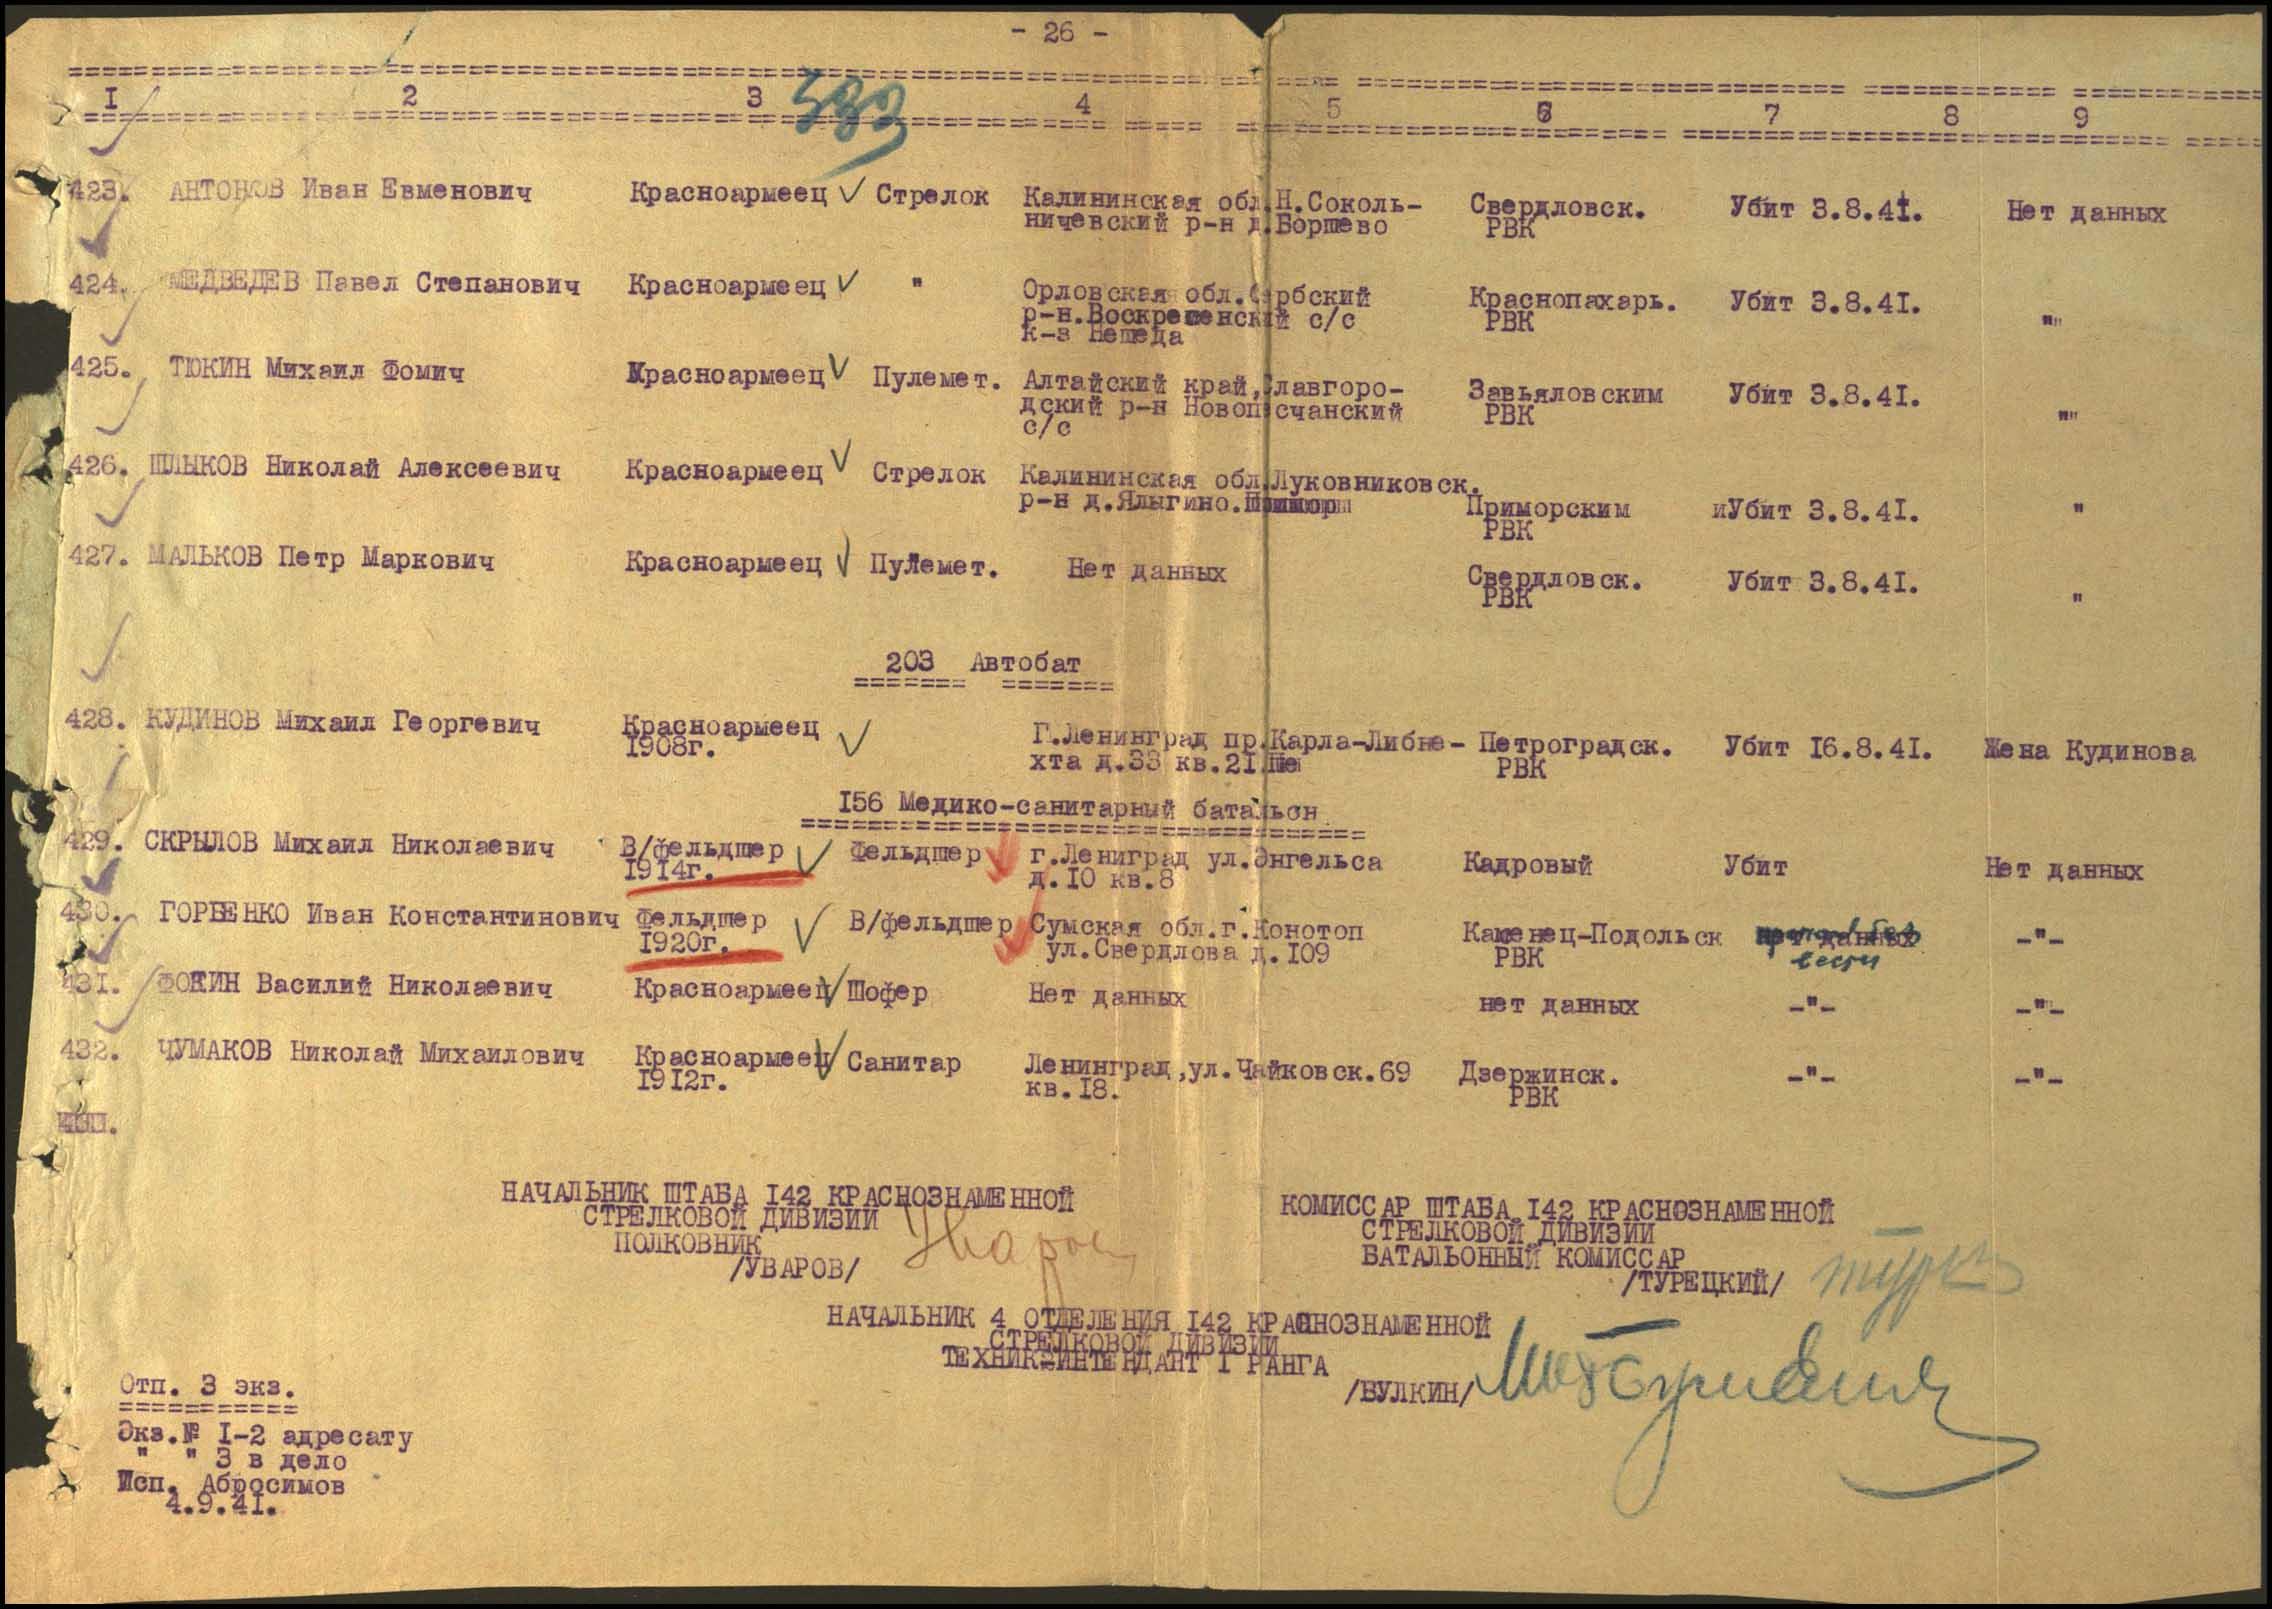 - 26 -
I 2 3 4 5 6 7 8 9
423. АНТОНОВ Иван Евменович Красноармеец Стрелок Калининская обл.Н.Соколь- Свердловск. Убит 3.8.4I. Нет данных
ничевский р-н д.Боршево РВК
424. МЕДВЕДЕВ Павел Степанович Красноармеец " Орловская обл. Краснопахарь. Убит 3.8.4I. "
р-н.Воскресенский с/с РВК
к-з
425. ТЮКИН Михаил Фомич Красноармеец Пулемет. Алтайский край,Славгоро- Завьяловским Убит 3.8.4I. "
дский р-н Новопесчанский РВК
с/с
426. ШЛЫКОВ Николай Алексеевич Красноармеец Стрелок Калининская обл.Луковниковск.
р-н д.Ялыгино. Приморским иУбит 3.8.4I. "
РВК
427. МАЛЬКОВ Петр Маркович Красноармеец Пулемет. Нет данных Свердловск. Убит 3.8.4I. "
РВК
203 Автобат
428. КУДИНОВ Михаил Георгевич Красноармеец Г.Ленинград пр.Карла-Либке- Петроградск. Убит I6.8.4I. Жена Кудинова
I908г. хта д.33 кв.2I РВК
I56 Медико-санитарный батальон
429. СКРЫЛОВ Михаил Николаевич В/фельдшер Фельдшер г.Лениград ул.Энгельса Кадровый Убит Нет данных
I9I4г. д.IO кв.8
430. ГОРБЕНКО Иван Константинович Фельдшер В/фельдшер Сумская обл.г.Конотоп Каменец-Подольск нет данных -"-
I920г. ул.Свердлова д.I09 РВК вести
43I. ФОКИН Василий Николаевич Красноармеец Шофер Нет данных нет данных -"- -"-
432. ЧУМАКОВ Николай Михаилович Красноармеец Санитар Ленинград,ул.Чайковск.69 Дзержинск. -"- -"-
I9I2г. кв.I8. РВК
НАЧАЛЬНИК ШТАБА I42 КРАСНОЗНАМЕННОЙ
СТРЕЛКОВОЙ ДИВИЗИИ
ПОЛКОВНИК
/УВАРОВ/ Уваров
КОМИССАР ШТАБА I42 КРАСНОЗНАМЕННОЙ
СТРЕЛКОВОЙ ДИВИЗИИ
БАТАЛЬОННЫЙ КОМИССАР
/ТУРЕЦКИЙ/
НАЧАЛЬНИК 4 ОТДЕЛЕНИЯ I42 КРАСНОЗНАМЕННОЙ
СТРЕЛКОВОЙ ДИВИЗИИ
ТЕХНИК-ИНТЕНДАНТ I РАНГА
/ВУЛКИН/
Отп. 3 экз.
Экз.№ I-2 адресату
" " 3 в дело
Исп. Абросимов
4.9.4I.